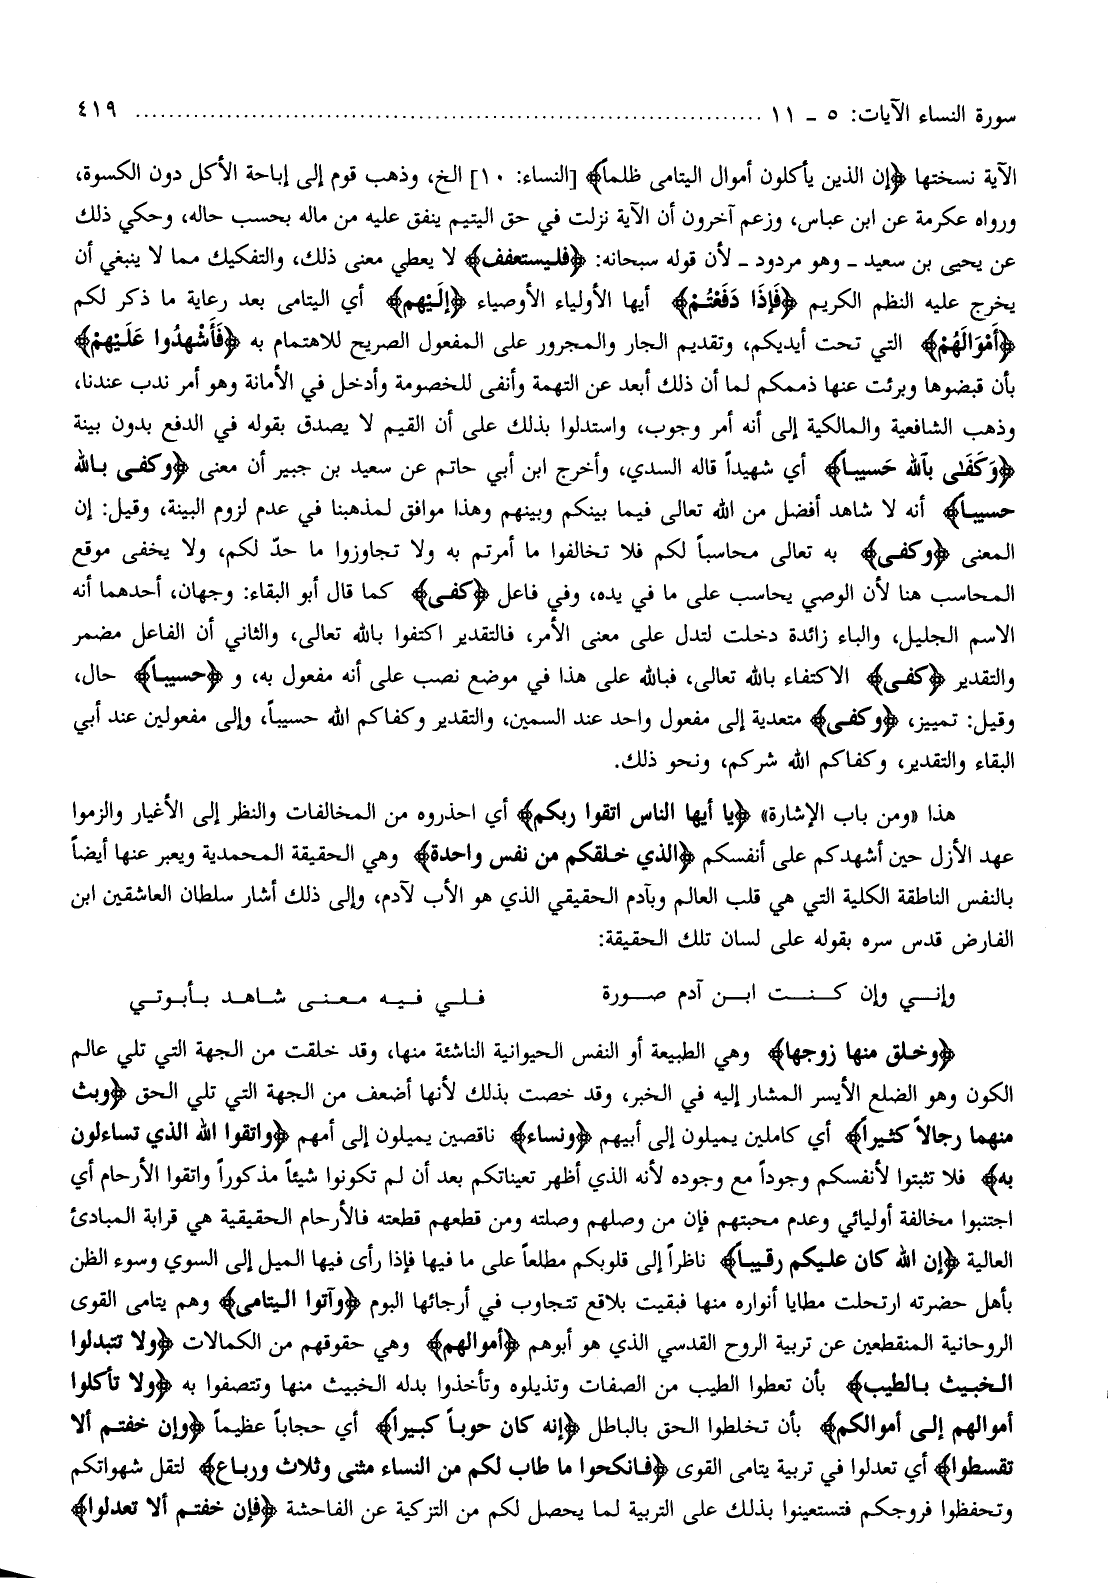 سورة النساء الآيات: ٥ ـ ١١ ................................................................................ ٤١٩
الآية نسختها ﴿إن الذين يأكلون أموال اليتامى ظلماً﴾ [النساء: ١٠] الخ، وذهب قوم إلى إباحة الأكل دون الكسوة،
ورواه عكرمة عن ابن عباس، وزعم آخرون أن الآية نزلت في حق اليتيم ينفق عليه من ماله بحسب حاله، وحكي ذلك
عن يحيى بن سعيد ـ وهو مردود ـ لأن قوله سبحانه: ﴿فليستعفف﴾ لا يعطي معنى ذلك، والتفكيك مما لا ينبغي أن
يخرج عليه النظم الكريم ﴿فَإِذَا دَفَعْتُمْ﴾ أيها الأولياء الأوصياء ﴿إِلَيْهِم﴾ أي اليتامى بعد رعاية ما ذكر لكم
﴿أَمْوَالَهُمْ﴾ التي تحت أيديكم، وتقديم الجار والمجرور على المفعول الصريح للاهتمام به ﴿فَأَشْهِدُوا عَلَيْهِمْ﴾
بأن قبضوها وبرئت عنها ذممكم لما أن ذلك أبعد عن التهمة وأنفى للخصومة وأدخل في الأمانة وهو أمر ندب عندنا،
وذهب الشافعية والمالكية إلى أنه أمر وجوب، واستدلوا بذلك على أن القيم لا يصدق بقوله في الدفع بدون بينة
﴿وَكَفَىٰ بِٱللهِ حَسِيباً﴾ أي شهيداً قاله السدي، وأخرج ابن أبي حاتم عن سعيد بن جبير أن معنى ﴿وكفى بالله
حسيباً﴾ أنه لا شاهد أفضل من الله تعالى فيما بينكم وبينهم وهذا موافق لمذهبنا في عدم لزوم البينة، وقيل: إن
المعنى ﴿وكفى﴾ به تعالى محاسباً لكم فلا تخالفوا ما أمرتم به ولا تجاوزوا ما حدّ لكم، ولا يخفى موقع
المحاسب هنا لأن الوصي يحاسب على ما في يده، وفي فاعل ﴿كفى﴾ كما قال أبو البقاء: وجهان، أحدهما أنه
الاسم الجليل، والباء زائدة دخلت لتدل على معنى الأمر، فالتقدير اكتفوا بالله تعالى، والثاني أن الفاعل مضمر
والتقدير ﴿كفى﴾ الاكتفاء بالله تعالى، فبالله على هذا في موضع نصب على أنه مفعول به، و ﴿حسيباً﴾ حال،
وقيل: تمييز، ﴿وكفى﴾ متعدية إلى مفعول واحد عند السمين، والتقدير وكفاكم الله حسيباً، وإلى مفعولين عند أبي
البقاء والتقدير، وكفاكم الله شركم، ونحو ذلك.
هذا «ومن باب الإشارة» ﴿يا أيها الناس اتقوا ربكم﴾ أي احذروه من المخالفات والنظر إلى الأغيار والزموا
عهد الأزل حين أشهدكم على أنفسكم ﴿الذي خلقكم من نفس واحدة﴾ وهي الحقيقة المحمدية ويعبر عنها أيضاً
بالنفس الناطقة الكلية التي هي قلب العالم وبآدم الحقيقي الذي هو الأب لآدم، وإلى ذلك أشار سلطان العاشقين ابن
الفارض قدس سره بقوله على لسان تلك الحقيقة:
وإنــي وإن كــنــت ابــن آدم صــورة فــلــي فــيــه مــعــنــى شــاهــد بــأبــوتــي
﴿وخلق منها زوجها﴾ وهي الطبيعة أو النفس الحيوانية الناشئة منها، وقد خلقت من الجهة التي تلي عالم
الكون وهو الضلع الأيسر المشار إليه في الخبر، وقد خصت بذلك لأنها أضعف من الجهة التي تلي الحق ﴿وبث
منهما رجالاً كثيراً﴾ أي كاملين يميلون إلى أبيهم ﴿ونساء﴾ ناقصين يميلون إلى أمهم ﴿واتقوا الله الذي تساءلون
به﴾ فلا تثبتوا لأنفسكم وجوداً مع وجوده لأنه الذي أظهر تعيناتكم بعد أن لم تكونوا شيئاً مذكوراً واتقوا الأرحام أي
اجتنبوا مخالفة أوليائي وعدم محبتهم فإن من وصلهم وصلته ومن قطعهم قطعته فالأرحام الحقيقية هي قرابة المبادئ
العالية ﴿إن الله كان عليكم رقيباً﴾ ناظراً إلى قلوبكم مطلعاً على ما فيها فإذا رأى فيها الميل إلى السوي وسوء الظن
بأهل حضرته ارتحلت مطايا أنواره منها فبقيت بلاقع تتجاوب في أرجائها البوم ﴿وآتوا اليتامى﴾ وهم يتامى القوى
الروحانية المنقطعين عن تربية الروح القدسي الذي هو أبوهم ﴿أموالهم﴾ وهي حقوقهم من الكمالات ﴿ولا تتبدلوا
الخبيث بالطيب﴾ بأن تعطوا الطيب من الصفات وتذيلوه وتأخذوا بدله الخبيث منها وتتصفوا به ﴿ولا تأكلوا
أموالهم إلى أموالكم﴾ بأن تخلطوا الحق بالباطل ﴿إنه كان حوباً كبيراً﴾ أي حجاباً عظيماً ﴿وإن خفتم ألا
تقسطوا﴾ أي تعدلوا في تربية يتامى القوى ﴿فانكحوا ما طاب لكم من النساء مثنى وثلاث ورباع﴾ لتقل شهواتكم
وتحفظوا فروجكم فتستعينوا بذلك على التربية لما يحصل لكم من التزكية عن الفاحشة ﴿فإن خفتم ألا تعدلوا﴾